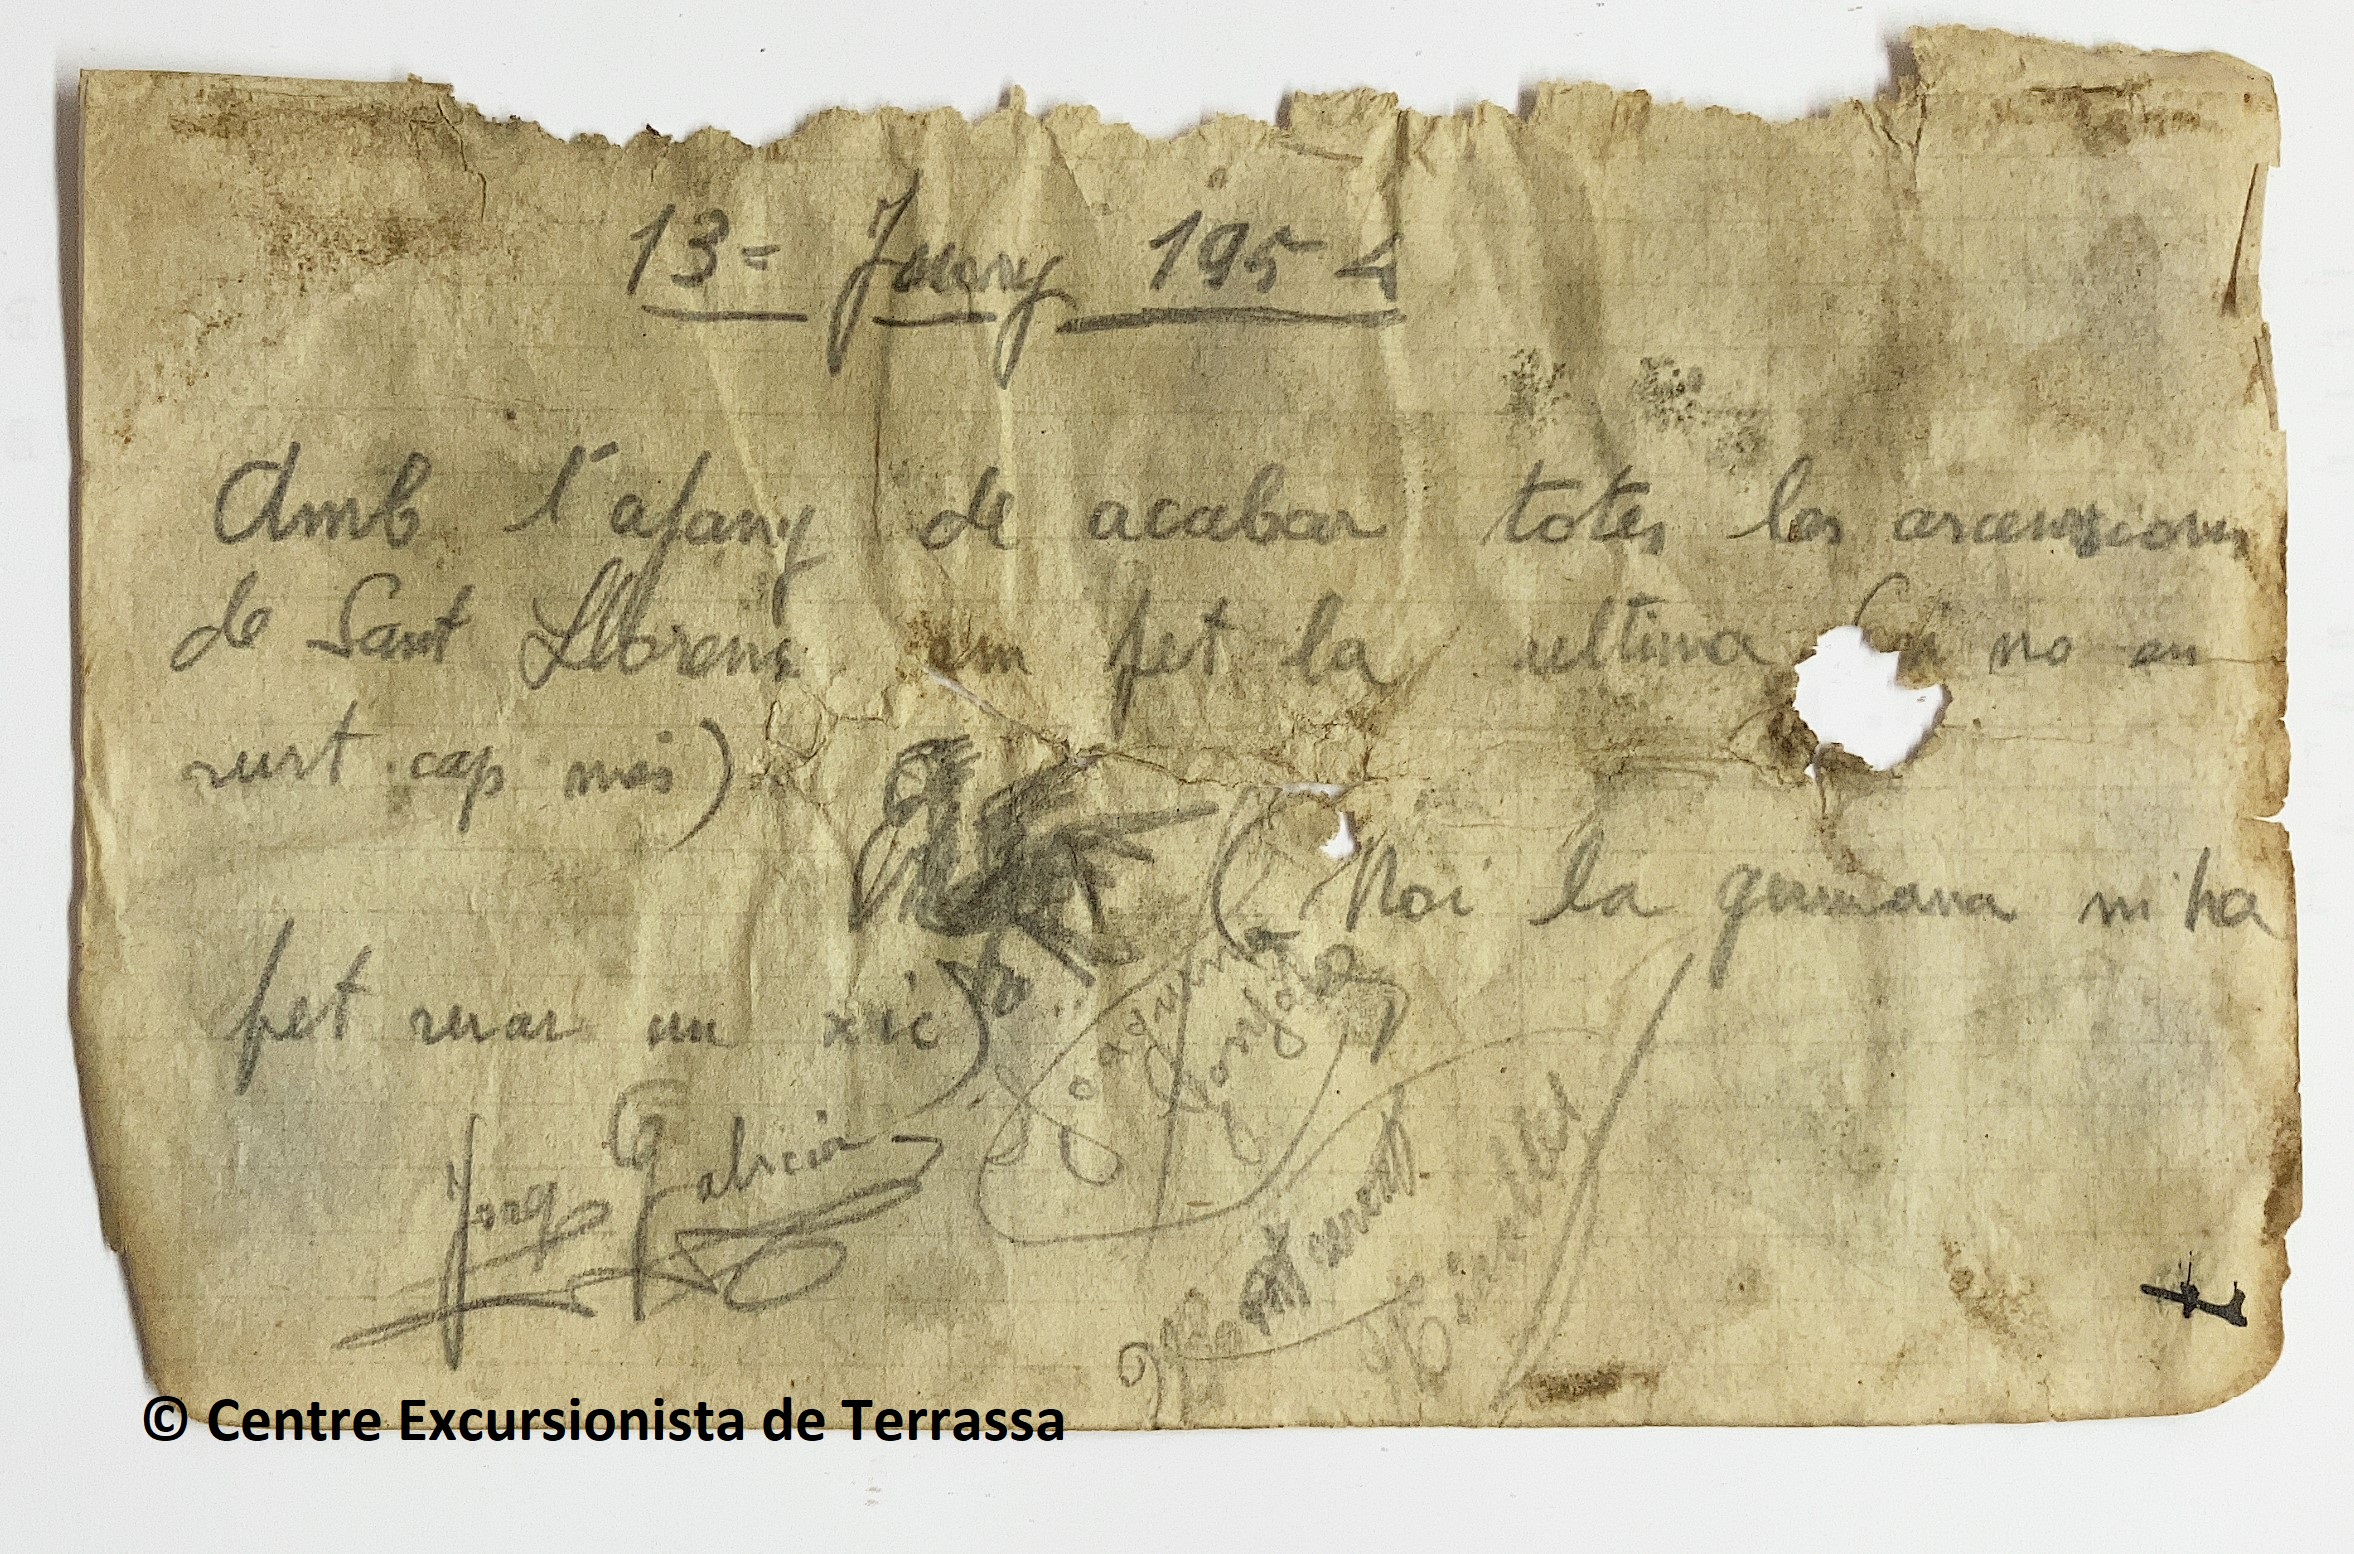 13= Juny 1954
Amb l'afany de acabar totes les ascensions
de Sant Llorens em fet la ultima (si no en
surt cap més)
(Noi la germana ni ha
fet suar un xic)
Jorge Galicia
Joaquima
© Centre Excursionista de Terrassa